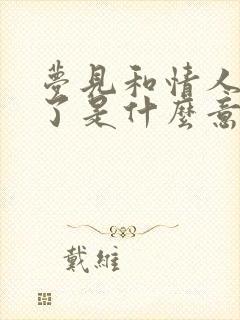 夢見和情人
了是什麼意
戴維